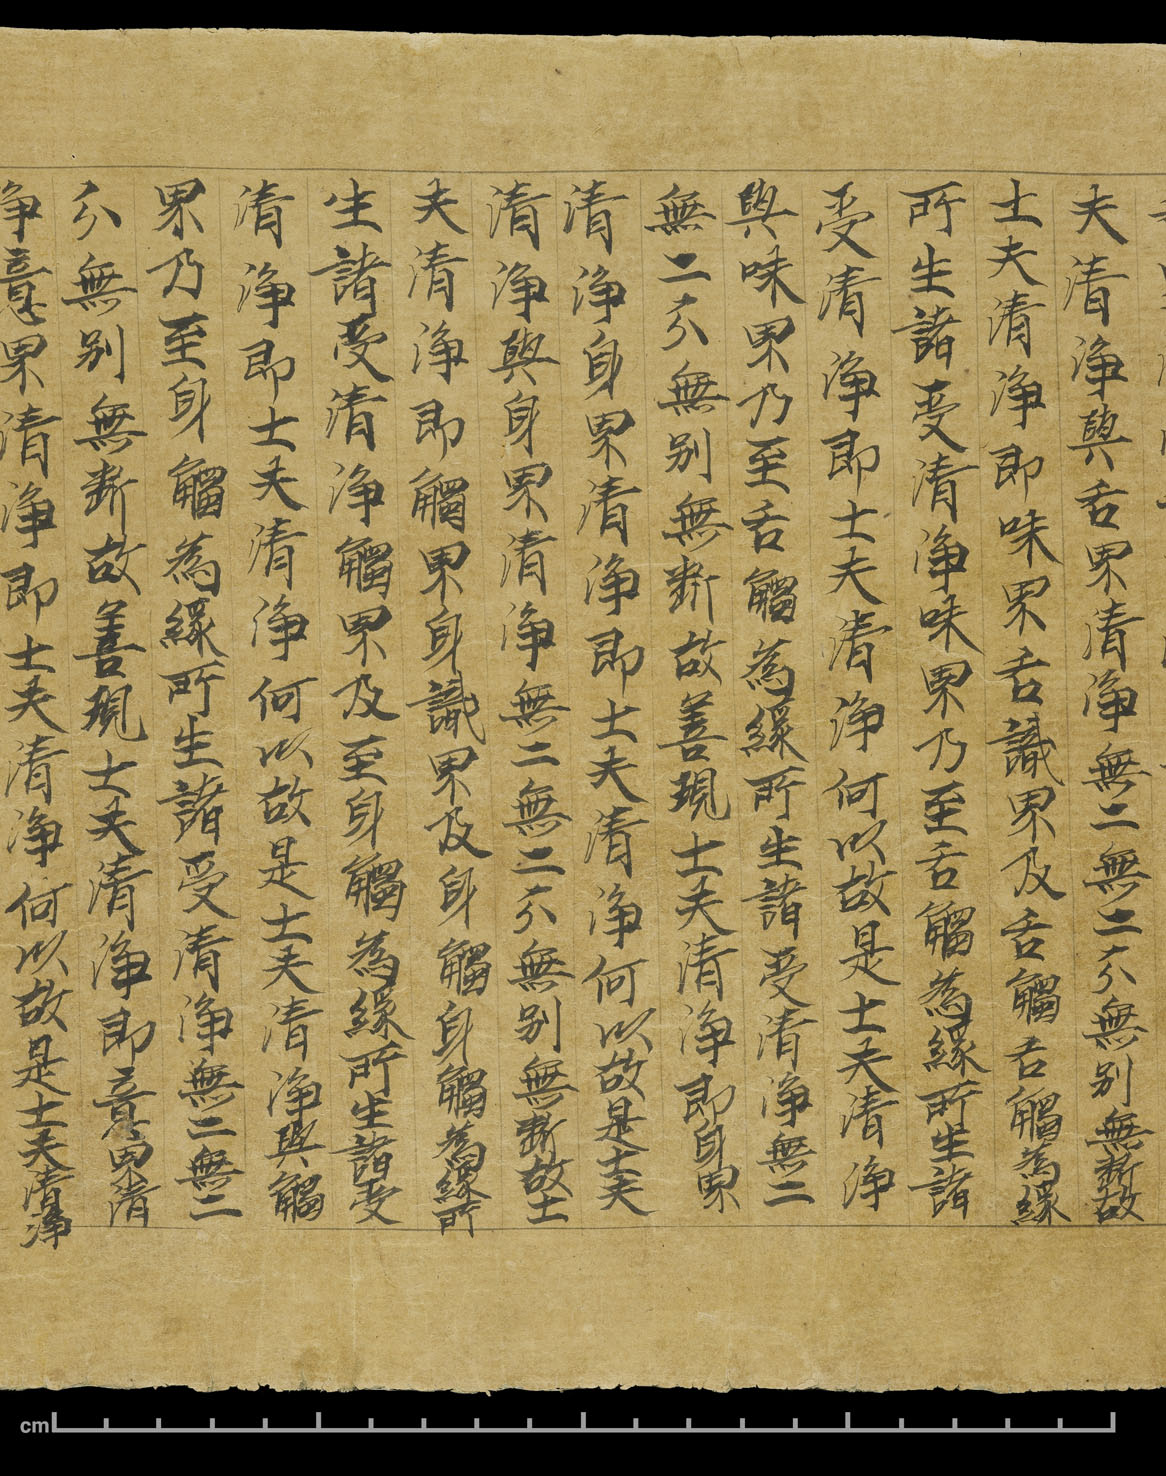 夫清淨與舌界清淨無二無二分無別無斷故
士夫清淨即味界舌識界及舌觸舌觸為緣
所生諸受清淨味界乃至舌觸為緣所生諸
受清淨即士夫清淨何以故是士夫清淨
與味界乃至舌觸為緣所生諸受清淨無二
無二分無別無斷故善現士夫清淨即身界
清淨身界清淨即士夫清淨何以故是士夫
清淨與身界清淨無二無二分無別無斷故士
夫清淨即觸界身識界及身觸身觸為緣所
生諸受清淨觸界及至身觸為緣所生諸受
清淨即士夫清淨何以故是士夫清淨與觸
界乃至身觸為緣所生諸受清淨無二無二
分無別無斷故善現士夫清淨即意界清
淨意界清淨即士夫清淨何以故是士夫清淨